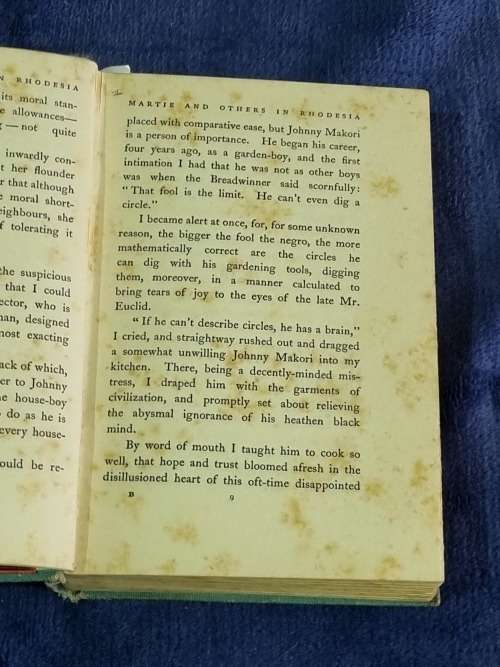 N RHODESIA
its moral stan-
e allowances—
g — not quite
inwardly con-
t her flounder
r that although
e moral short-
neighbours, she
f tolerating it
the suspicious
that I could
ector, who is
man, designed
most exacting
ack of which,
er to Johnny
he house-boy
o do as he is
every house-
ould be re-
MARTIE AND OTHERS IN RHODESIA
placed with comparative ease, but Johnny Makori
is a person of importance. He began his career,
four years ago, as a garden-boy, and the first
intimation I had that he was not as other boys
was when the Breadwinner said scornfully:
“ That fool is the limit. He can't even dig a
circle.”
I became alert at once, for, for some unknown
reason, the bigger the fool the negro, the more
mathematically correct are the circles he
can dig with his gardening tools, digging
them, moreover, in a manner calculated to
bring tears of joy to the eyes of the late Mr.
Euclid.
“ If he can't describe circles, he has a brain,”
I cried, and straightway rushed out and dragged
a somewhat unwilling Johnny Makori into my
kitchen. There, being a decently-minded mis-
tress, I draped him with the garments of
civilization, and promptly set about relieving
the abysmal ignorance of his heathen black
mind.
By word of mouth I taught him to cook so
well, that hope and trust bloomed afresh in the
disillusioned heart of this oft-time disappointed
B 9